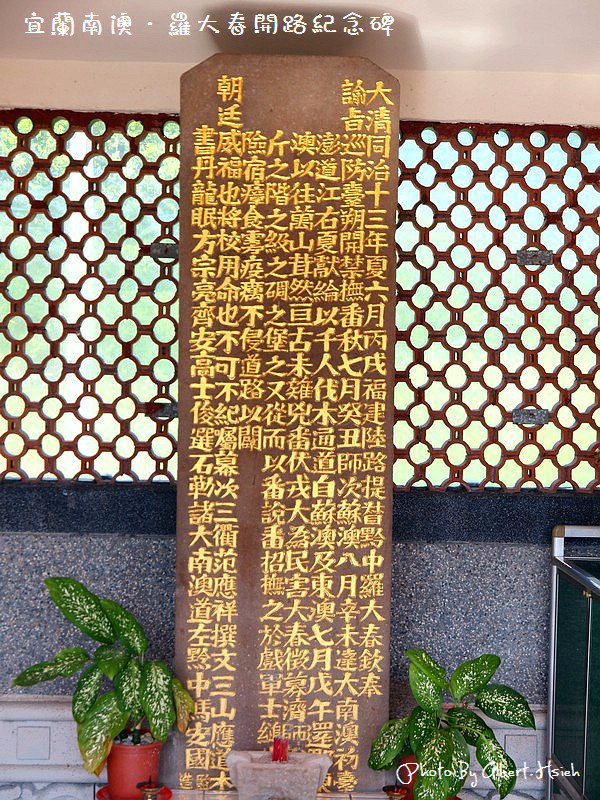 宜蘭南澳‧羅大春開路紀念碑
大清同治十三年夏六月丙戌福建陸路提督黔中羅大春欽奉
諭旨巡防臺朔開禁撫番秋七月癸丑師次蘇澳八月辛未達大南澳初臺
澎道江右夏獻綸以千人伐木通道自蘇澳及東澳七月戊午罷
澳以往萬山茸然亘古未薙兇番伏戎大為民害大春徵募濟師
斤之階之級之碉之堡之又從而以番說番招撫之於戲軍士緣
險宿瘴食霧疫癘不侵道路以闢
朝廷威福也將校用命也不可不紀爰屬幕次三衢范應祥撰文三山應道本
書丹龍眠方宗亮齊安高士俊選石勒諸大南澳道左黔中馬安國
Photo By Albert.Hsieh